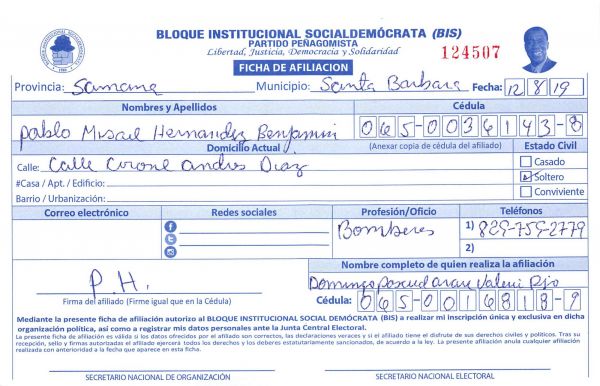 BLOQUE INSTITUCIONAL SOCIALDEMÓCRATA (BIS)
PARTIDO PEÑAGOMISTA
Libertad, Justicia, Democracia y Solidaridad
124507
FICHA DE AFILIACION
Provincia: Samana Municipio: Santa Barbara Fecha: 12/8/19
Nombres y Apellidos Cédula
Pablo Misael Hernandez Benjamin 065-0036143-8
Domicilio Actual (Anexar copia de cédula del afiliado) Estado Civil
Calle: Calle Andres Diaz Casado
#Casa / Apt. / Edificio: Soltero
Barrio / Urbanización: Conviviente
Correo electrónico Redes sociales Profesión/Oficio Teléfonos
Bomberos 1) 829-759-2779
2)
Nombre completo de quien realiza la afiliación
P.H. Domingo
Firma del afiliado (Firme igual que en la Cédula) Cédula: 065-0016818-9
Mediante la presente ficha de afiliación autorizo al BLOQUE INSTITUCIONAL SOCIAL DEMÓCRATA (BIS) a realizar mi inscripción única y exclusiva en dicha
organización política, así como a registrar mis datos personales ante la Junta Central Electoral.
La presente ficha de afiliación es válida si los datos ofrecidos por el afiliado son correctos, las declaraciones veraces y si el afiliado tiene el disfrute de sus derechos civiles y políticos. Tras su
recepción, sello y firmas autorizadas el afiliado ejercerá todos los derechos y los deberes estatutariamente sancionados, de acuerdo a la ley. La presente afiliación anula cualquier afiliación
realizada con anterioridad a la fecha que aparece en esta ficha.
SECRETARIO NACIONAL DE ORGANIZACIÓN SECRETARIO NACIONAL ELECTORAL